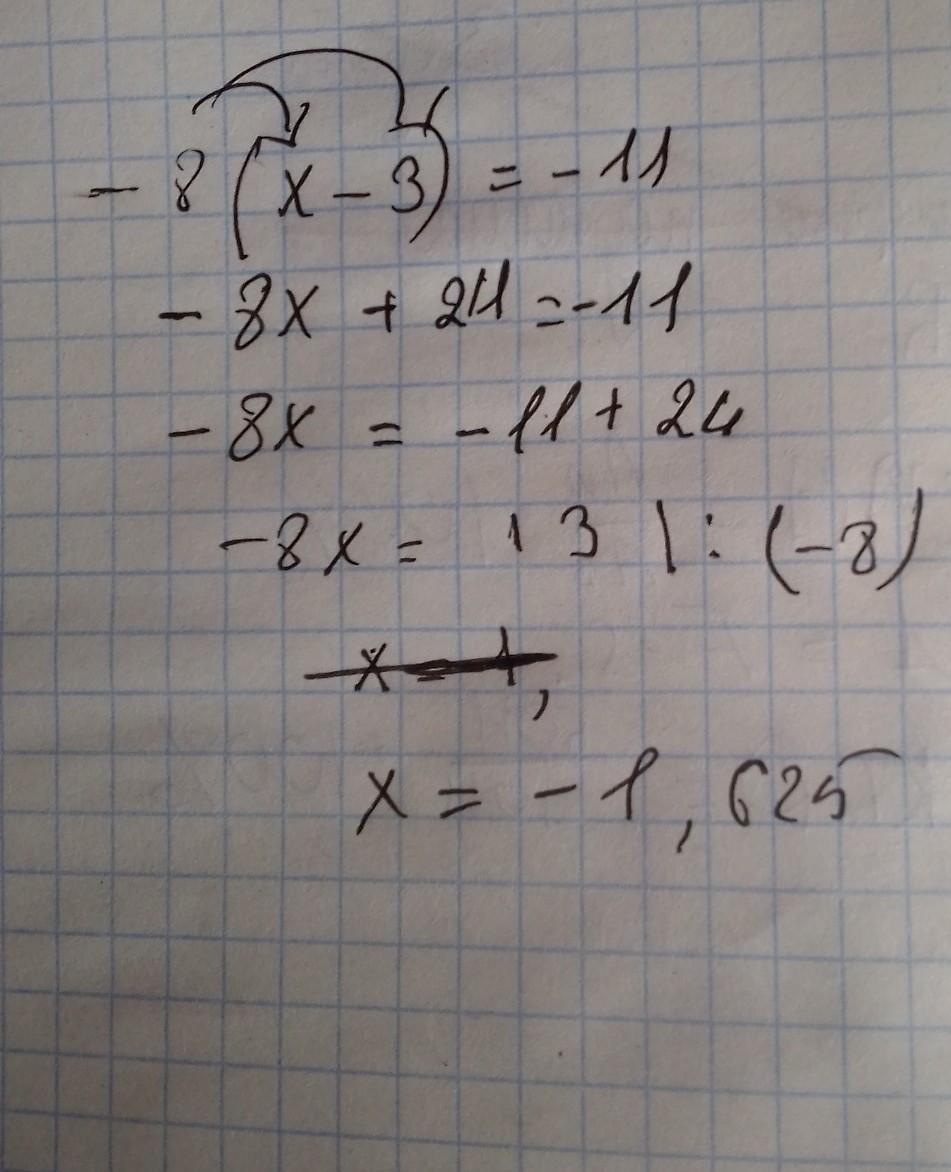 - 8 (x - 3) = - 11
- 8x + 24 = - 11
- 8x = - 11 + 24
- 8x = 13 | : (-8)
x = 1,
x = - 1, 625